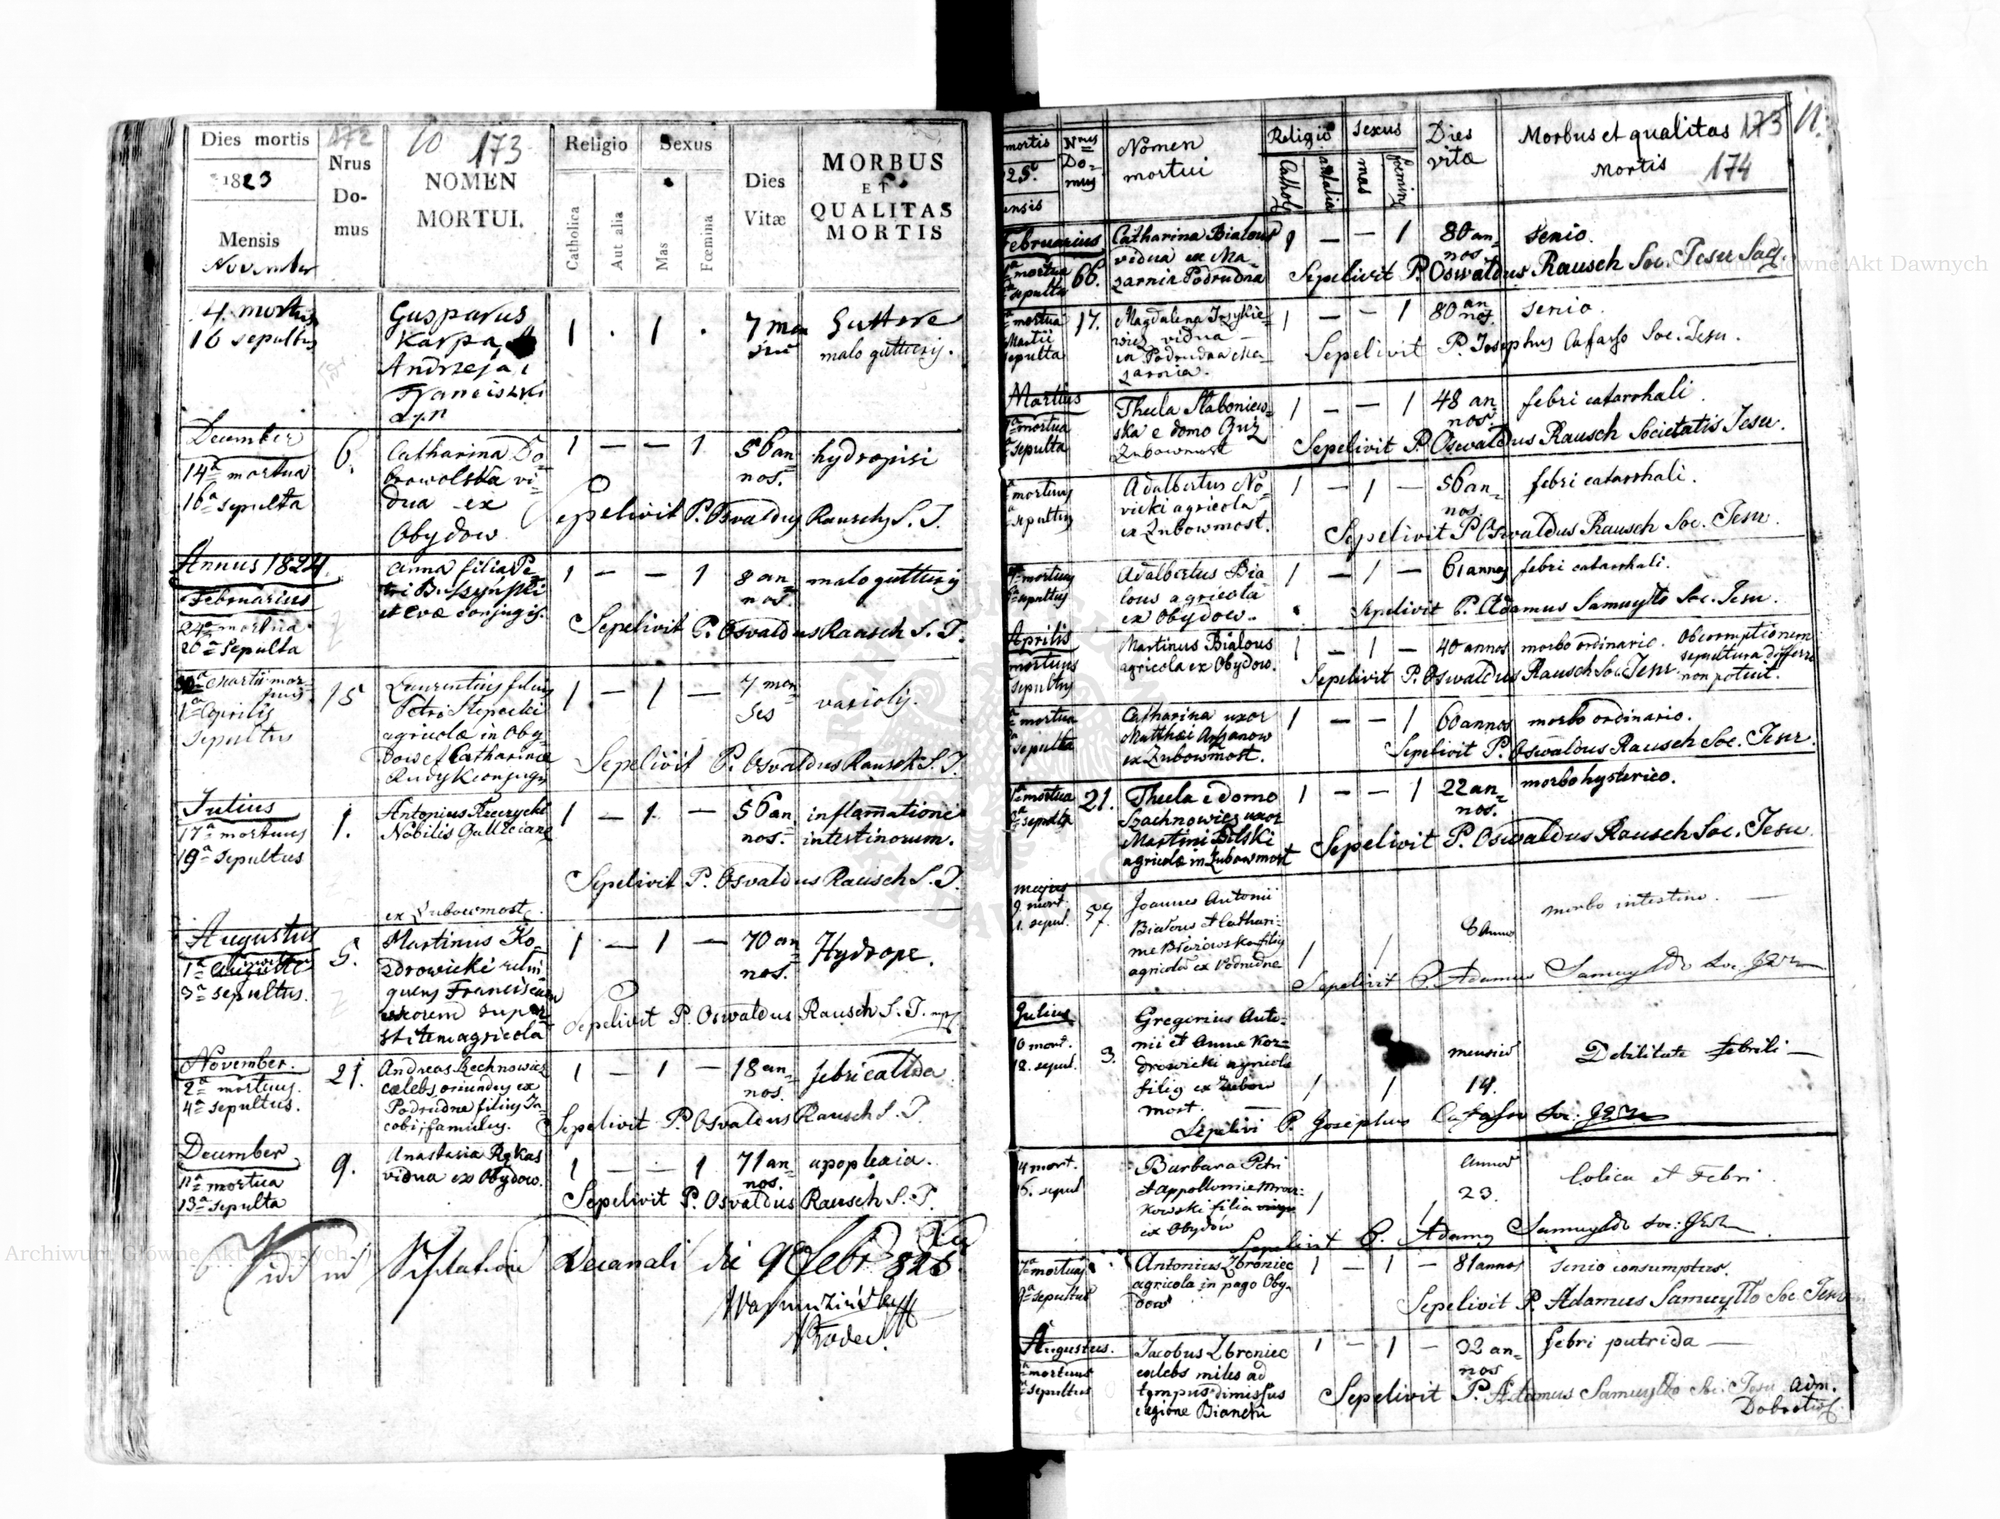 Dies mortis
1823
Mensis
November
172
Nrus
Do-
mus
10 173
NOMEN
MORTUI.
Religio
Catholica
Aut alia
Sexus
Mas
Fœmina
Dies
Vitæ
MORBUS
ET
QUALITAS
MORTIS
14 mortuus
16 sepultus
Gasparus
Karpa
Andrzeja i
Franciszki
syn
1 . 1 .
7 men
Guttere
malo gutturis.
December
14ª mortua
16ª sepulta
6.
Catharina Do-
browolska vi-
dua ex
Obydow
1 — — 1
56 an
nos.
hydropisi
Sepelivit P. Osvaldus Rausch S. J.
Annus 1824
Februarius
24ª mortua
26ª Sepulta
Anna filia Pe-
tri
et Evæ conjugis.
1 — — 1
8 an
nos.
malo gutturis
Sepelivit P. Osvaldus Rausch S. J.
Martii mor-
tuus
1ª Aprilis
Sepultus
15
Laurentius filius
Petri Stepecki
agricolæ in Oby
dow et Catharinæ
Rudyk conjugum
1 — 1 —
7 men
ses
variolis.
Sepelivit P. Osvaldus Rausch S. J.
Julius
17ª mortuus
19ª Sepultus
1.
Antonius Krzeczycki
Nobilis Gallicianus
ex Zubowmost.
1 — 1 —
56 an
nos.
inflamatione
intestinorum.
Sepelivit P. Osvaldus Rausch S. J.
Augustus
1ª mortuus
3ª sepultus.
5.
Martinus Ko-
zdrowicki relin
quens Franciscam
uxorem super
stitem agricola
1 — 1 —
70 an
nos.
Hydrope.
Sepelivit P. Osvaldus Rausch S. J.
November.
2ª mortuus.
4ª sepultus.
21.
Andreas Lechnowicz
cælebs oriundus ex
Podrudne filius Ja-
cobi, famulus.
1 — 1 —
18 an-
nos.
febri calida
Sepelivit P. Osvaldus Rausch S. J.
December
11ª mortua
13ª sepulta
9.
Anastasia Rykas
vidua ex Obydow.
1 — — 1
71 an-
nos.
apoplexia.
Sepelivit P. Osvaldus Rausch S. J.
Vidi in Visitatione Decanali die 9 Febr. 825
mortis
25.
ensis
Nrus
Do-
mus
Nomen
mortui
Religio
Cathol
aut alia
Sexus
mas
femin
Dies
vitæ
Morbus et qualitas
Mortis
173 11.
174
Februarius
mortua
sepulta
66.
Catharina Bialous
vidua ex Ma-
zarnia Podrudna
1 — — 1
80 an-
nos
senio.
Sepelivit P. Oswaldus Rausch Soc. Jesu Sac.
mortua
Martii
sepulta
17.
Magdalena
vidua
in Podrudna Ma-
zarnia.
1 — — 1
80 an
nos.
senio.
Sepelivit P. Josephus Cafasso Soc. Jesu.
Martius
mortua
sepulta
Thecla Slaboniew-
ska e domo Guz
Zubowmost
1 — — 1
48 an
nos.
febri catarrhali.
Sepelivit P. Oswaldus Rausch Societatis Jesu.
mortuus
sepultus
Adalbertus No-
vicki agricola
ex Zubowmost.
1 — 1 —
56 an-
nos.
febri catarrhali.
Sepelivit P. Osvaldus Rausch Soc. Jesu.
mortuus
sepultus
Adalbertus Bia
lous agricola
ex Obydow.
1 — 1 —
61 annos
febri catarrhali.
Sepelivit P. Adamus Samuyllo Soc. Jesu.
Aprilis
mortuus
sepultus
Martinus Bialous
agricola ex Obydow.
1 — 1 —
40 annos
morbo ordinario. Ob corruptionem
sepultura differri
non potuit.
Sepelivit P. Osvaldus Rausch Soc. Jesu.
mortua
sepulta
Catharina uxor
Matthæi
ex Zubowmost.
1 — — 1
60 annos
morbo ordinario.
Sepelivit P. Osvaldus Rausch Soc. Jesu.
mortua
sepulta
21.
Thecla e domo
Szachnowicz uxor
Martini Bilski
agricolæ in Zubowmost
1 — — 1
22 an-
nos.
morbo hysterico.
Sepelivit P. Oswaldus Rausch Soc. Jesu
Majus
9. mort.
11. sepul.
57.
Joannes Antonii
Bialous et Cathari-
næ filius
agricola ex Podrudne
1 1
8 Annor
morbo intestino. —
Sepelivit P. Adamus Samuyllo Soc. Jesu
Julius
10 mort.
12. sepul.
3.
Gregorius Anto-
nii et Annæ Koz-
drowicki agricolæ
filius ex Zubow
most. —
1 1
mensium
14.
Debilitate febrili —
Sepelivi P. Josephus Cafasso Soc: Jesu
14 mort.
16. sepul
Barbara Petri
et Appolloniæ Mroz-
kowski filia virgo
ex Obydów
1 1
Annor
23.
Colica et Febri.
Sepelivit P. Adamus Samuyllo Soc: Jesu
7ª mortuus
9ª sepultus
Antonius Zbroniec
agricola in pago Oby-
dow
1 — 1 —
81 annos
senio consumptus.
Sepelivit P. Adamus Samuyllo Soc. Jesu
Augustus.
mortuus
sepultus
Jacobus Zbroniec
cælebs miles ad
tempus dimissus
e legione Bianchi
1 — 1 —
32 an-
nos
febri putrida —
Sepelivit P. Adamus Samuyllo Soc. Jesu Adm.
Dobrotw.
Archiwum Główne Akt Dawnych
Archiwum Główne Akt Dawnych